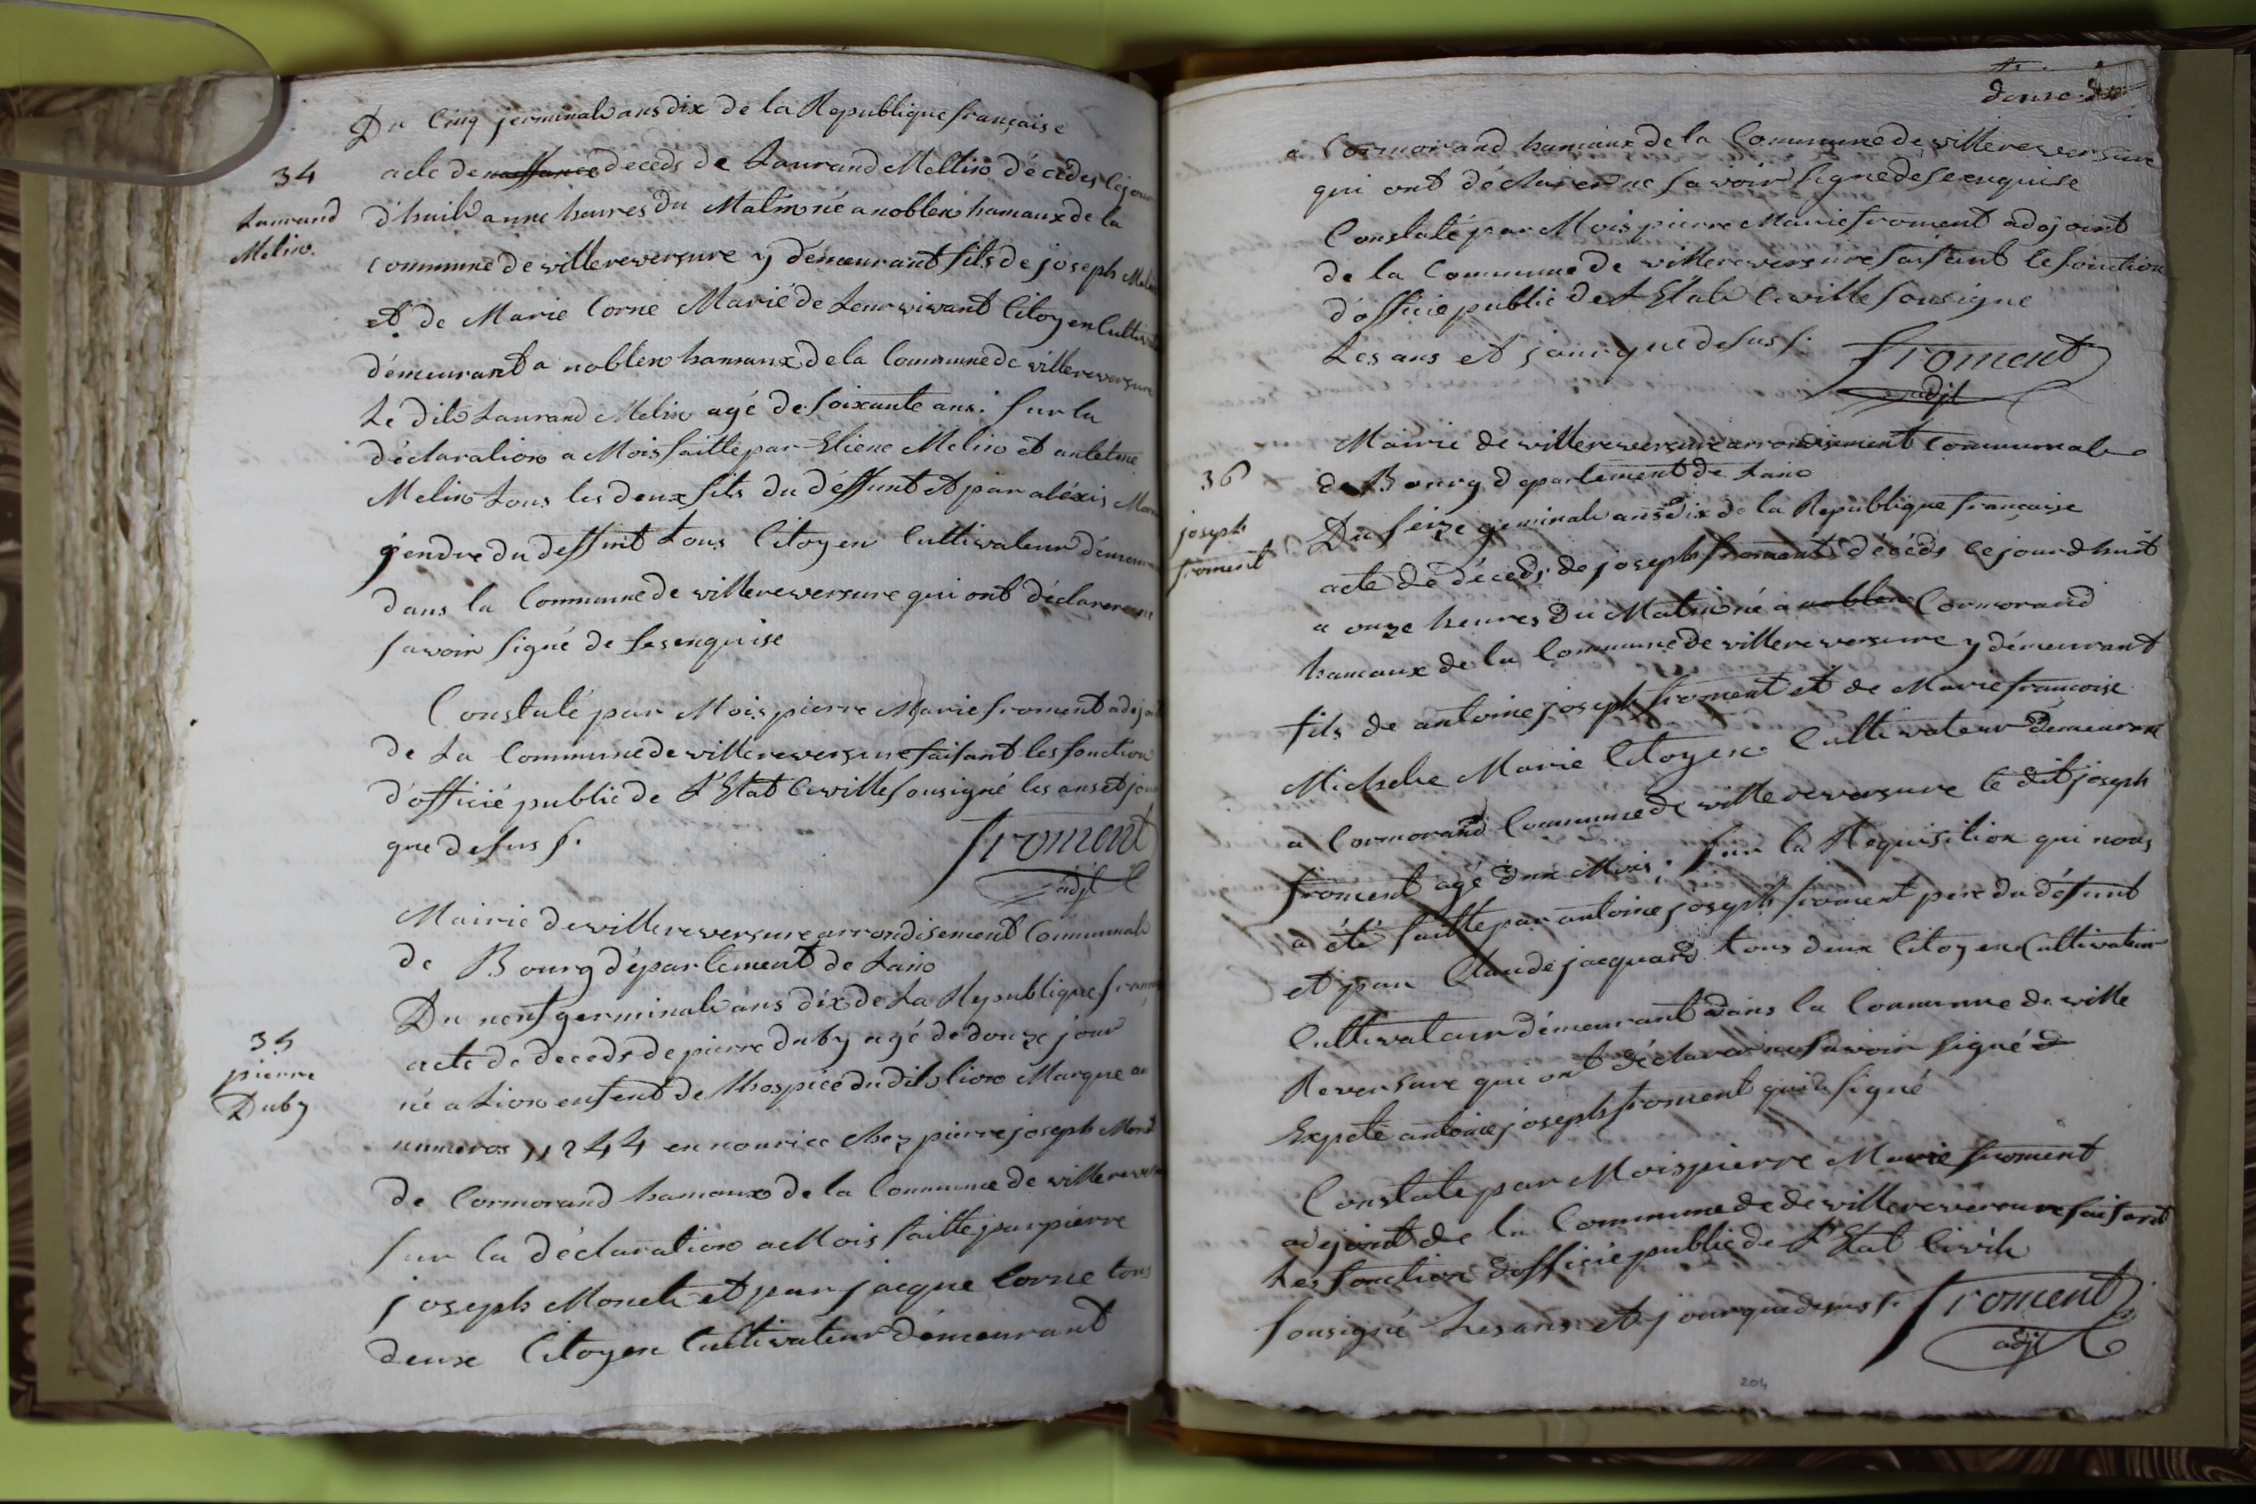 Du Cinq germinal ans dix de la Republique française
34
acte de naissance deceds de Laurand Mellin décédes cejour
Laurand
d'huit a une heures du Matin né a noblen hamaux de la
Melin.
commune de villereversure y démeurant fils de joseph
et de Marie Corne Marié de Leur vivant Citoyen
démeurant a noblen hamaux de la Commune de villereversure
Le dit Laurand Melin agé de soixante ans. sur la
déclaration a Mois faitte par Etiene Melin et
Melin tous les deux fils du déffunt et par aléxis
gendre du deffint tous Citoyen Cultivateur
dans la Commune de villereversure qui ont déclarer ne
savoir signé de sesenquise
Constaté par Mois pierre Marie froment
de La Commune de villereversure faisant les fonction
d'officié public de L'Etat Civille sousigné les ans et jour
que desus s.
froment
adjt
Mairie de villereversure arrondisement Communale
de Bourg département de Lain
Du neuf germinale ans dix de La Republique
35
acte de deceds de pierre duby agé de douze jour
pierre
né a Lion enfent de lhospice du dit lion Marque au
Duby
numeros 11244 en nourice chez pierre joseph
de Cormorand hamaux de la Commune de
sur la déclaration a Mois faitte par pierre
joseph Monet et par jacque Corne tous
deux Citoyen Cultivateur démeurant
a Cormorand hamaux de la Commune de villereversure
qui ont déclarer ne savoir signé de seenquise
Constaté par Mois pierre Marie froment adojoint
de la Commune de villereversure faisant lesfonction
d'officie public de L'Etat Civille sousigne
Les ans et jour que desus s.
froment
adjt
Mairie de villereversure arrondisement Communale
36
de Bourg departement de Lain
joseph
Du seize geminale ans dix de la Republique francaise
froment
acte de déceds de joseph froment décéds cejourdhuit
a onze heures du Matin né a noblen Cormorand
hamaux de la Commune de villereversure y démeurant
fils de antoine joseph froment et de Marie francoise
Michelre Marie Citoyen Cultivateur demeurant
a Cormorand Commune de villereversure le dit joseph
froment agé dun Mois: sur la Requisition qui nous
a été faitte par antoine joseph froment pere du défunt
et par Claude jacquand tous deux Citoyen Cultivateur
Cultivateur démeurant dans la Commune de ville
Reversure qui ont déclarer ne savoir signé d
Expcté antoine joseph froment qui a signé
Constaté par Mois pierre Marie froment
adojoint de la Commune de de villereversure faisant
Les fonction dofficié public de L'Etat Civile
sousigné Les ans et jour que desus s.
froment
adjt
204